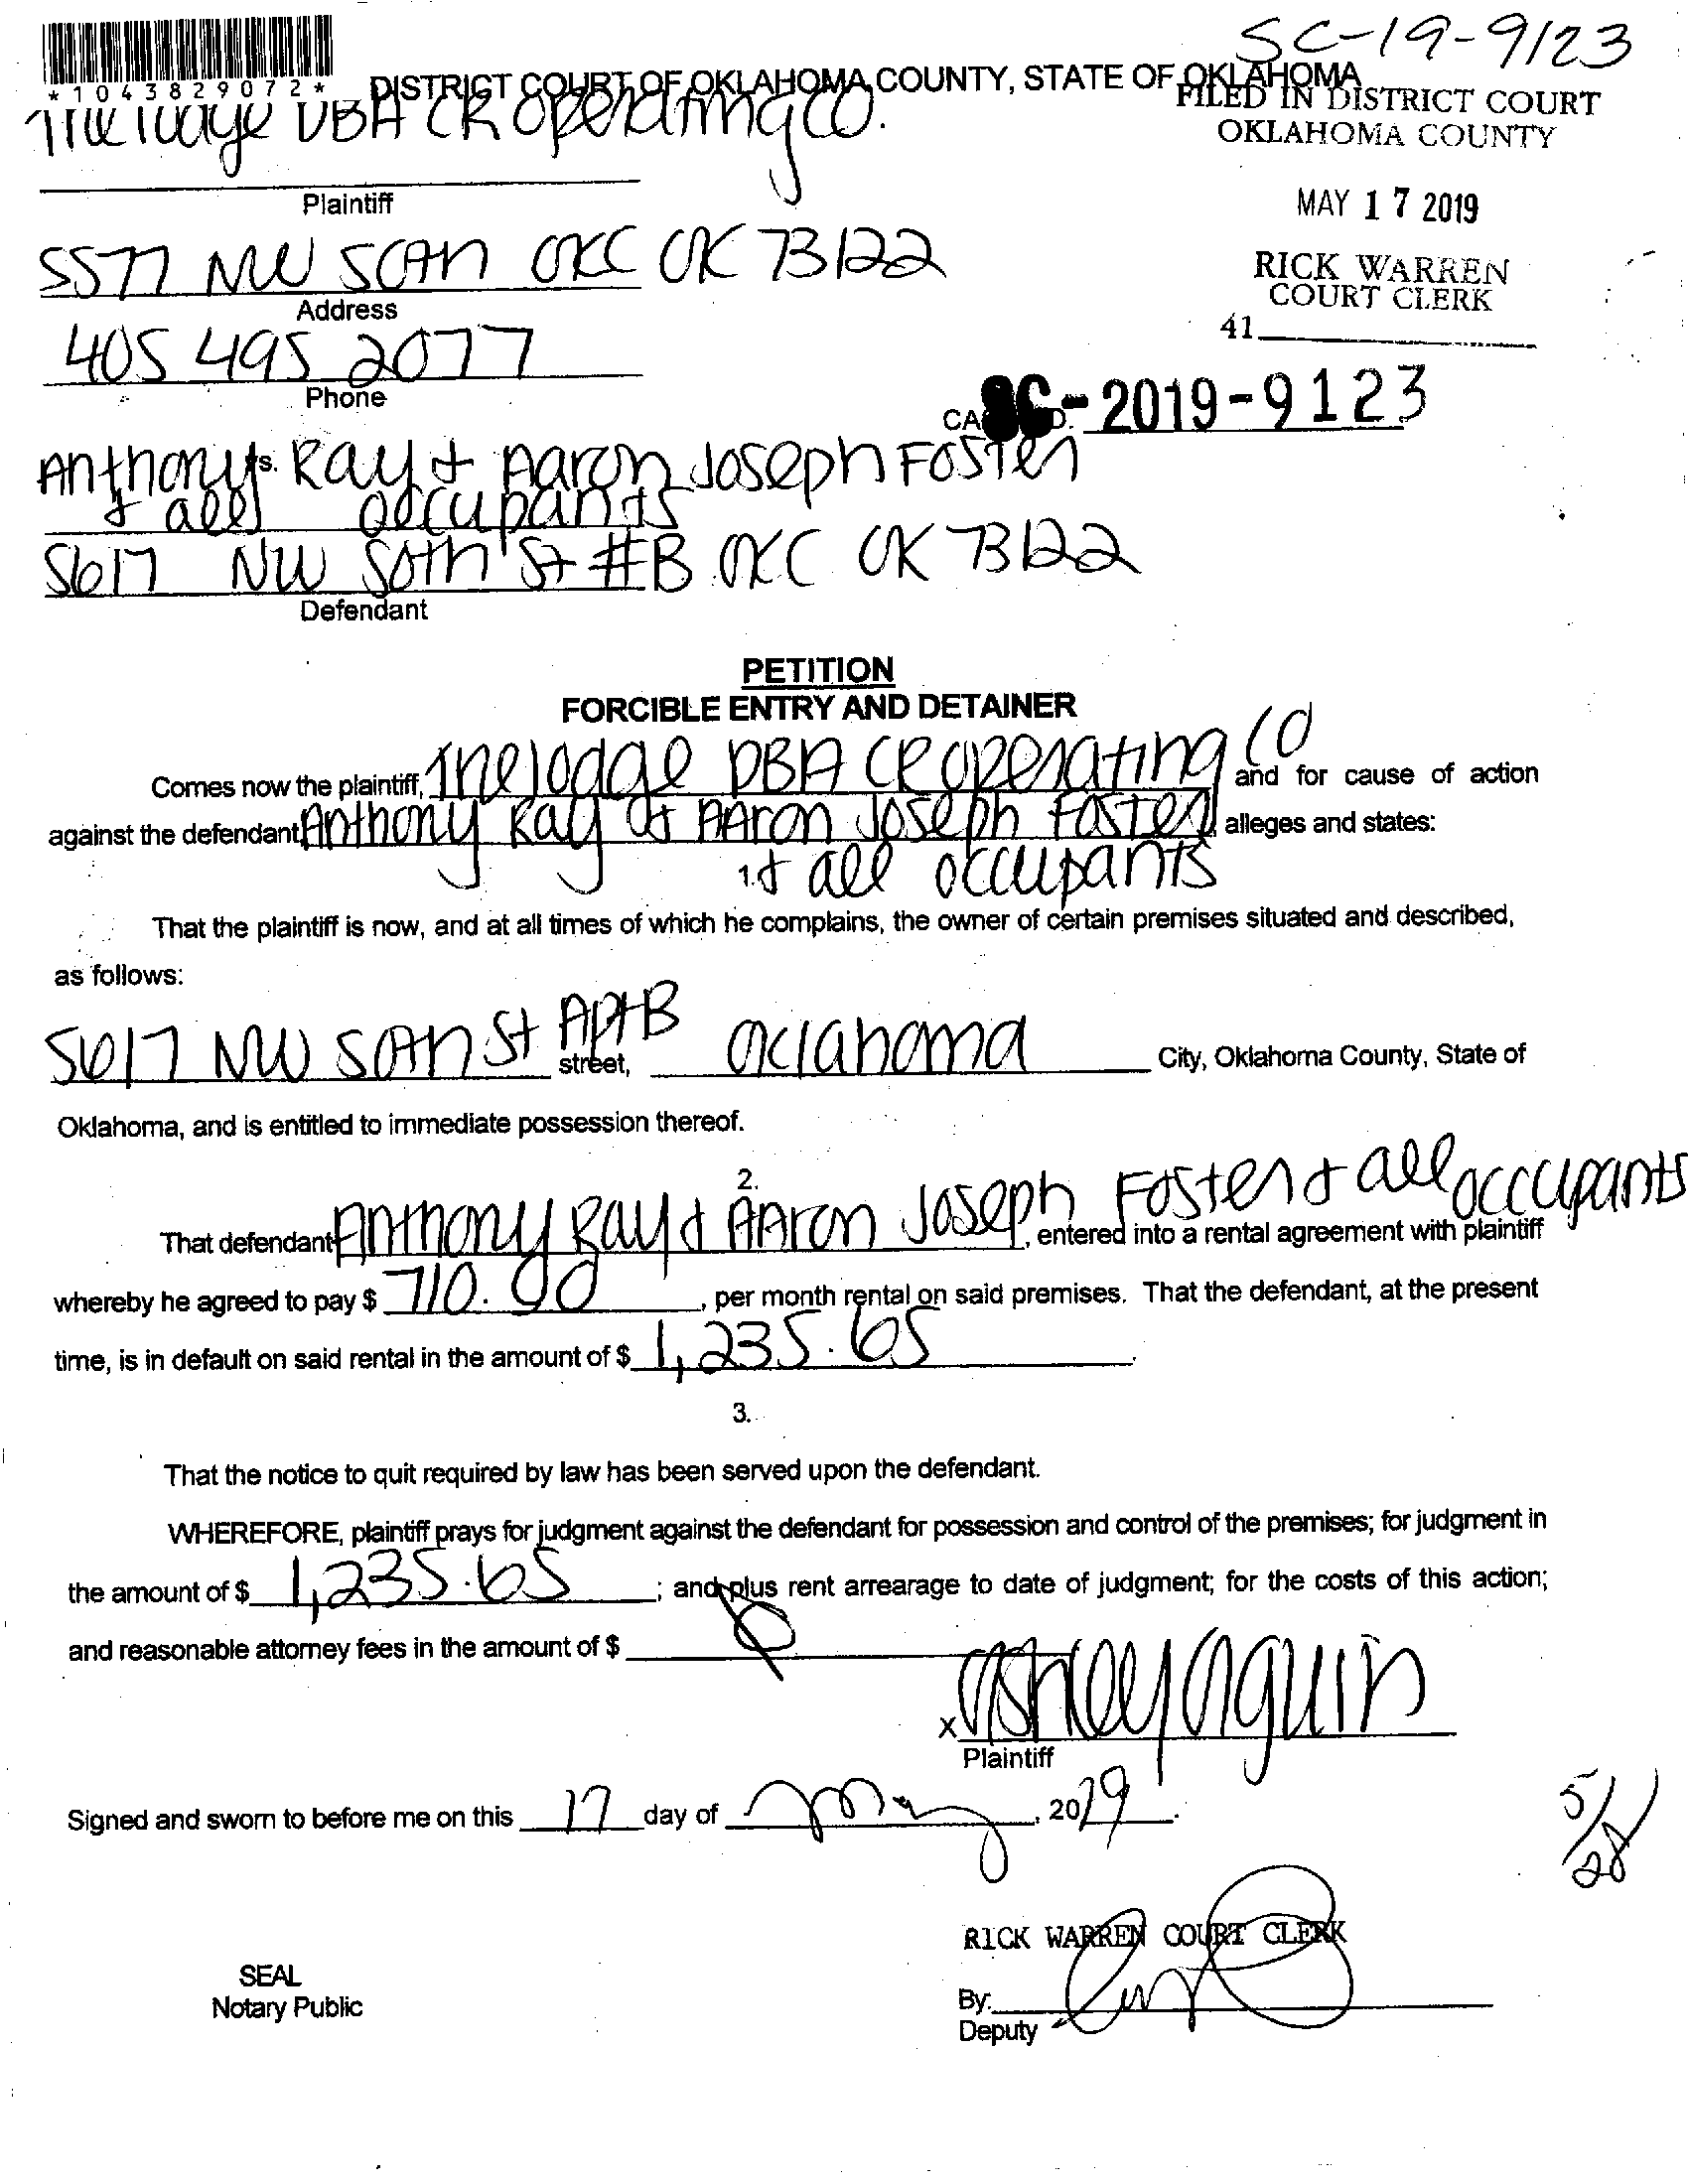 SC-19-9123
*1043829072*
DISTRICT COURT OF OKLAHOMA COUNTY, STATE OF OKLAHOMA
FILED IN DISTRICT COURT
OKLAHOMA COUNTY
The lodge DBA CR Operating CO.
Plaintiff
MAY 17 2019
5577 NW 50th OKC OK 73122
Address
RICK WARREN
COURT CLERK
41
405 495 2077
Phone
SC-2019-9123
Anthony Ray & Aaron Joseph Foster
vs.
& all occupants
5617 NW 50th St #B OKC OK 73122
Defendant
PETITION
FORCIBLE ENTRY AND DETAINER
Comes now the plaintiff, The lodge DBA CR Operating CO and for cause of action
against the defendant, Anthony Ray & Aaron Joseph Foster, alleges and states:
1. & all occupants
That the plaintiff is now, and at all times of which he complains, the owner of certain premises situated and described,
as follows:
5617 NW 50th St Apt B street, Oklahoma City, Oklahoma County, State of
Oklahoma, and is entitled to immediate possession thereof.
2.
That defendant Anthony Ray & Aaron Joseph Foster & all occcupants, entered into a rental agreement with plaintiff
whereby he agreed to pay $ 710.00, per month rental on said premises. That the defendant, at the present
time, is in default on said rental in the amount of $ 1,235.65.
3.
That the notice to quit required by law has been served upon the defendant.
WHEREFORE, plaintiff prays for judgment against the defendant for possession and control of the premises; for judgment in
the amount of $ 1,235.65; and plus rent arrearage to date of judgment; for the costs of this action;
and reasonable attorney fees in the amount of $ 0
x Ashley Aguin
Plaintiff
Signed and sworn to before me on this 17 day of May, 2019.
5/28
RICK WARREN COURT CLERK
SEAL
Notary Public
By:
Deputy